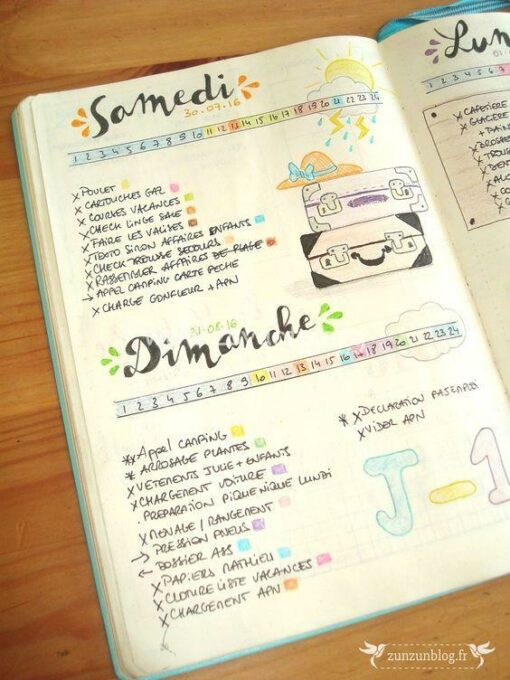 Samedi
30.07.16
1 2 3 4 5 6 7 8 9 10 11 12 13 14 15 16 17 18 19 20 21 22 23 24
x POULET
x CARTOUCHES GAZ
x COURSES VACANCES
x CHECK LINGE SALE
x FAIRE LES VALISES
x TEXTO SIMON AFFAIRES ENFANTS
x CHECK TROUSSE SECOURS
x RASSEMBLER AFFAIRES DE PLAGE
→ APPEL CAMPING CARTE PECHE
x CHARGE GONFLEUR + APN
Dimanche
1 2 3 4 5 6 7 8 9 10 11 12 13 14 15 16 17 18 19 20 21 22 23 24
*x Appel CAMPING
*x ARROSAGE PLANTES
x VETEMENTS JULIE + ENFANTS
x CHARGEMENT VOITURE
· PREPARATION PIQUE NIQUE LUNDI
x MENAGE / RANGEMENT
→ PRESSION PNEUS
← DOSSIER ASS
x PAPIERS MATHIEU
x CLOTURE LISTE VACANCES
x CHARGEMENT APN
* x DECLARATION PAJEMPLOI
x VIDER APN
J-1
Lun
1 2 3 4 5 6 7
x CAFETIERE
x GLACIERE
zunzunblog.fr